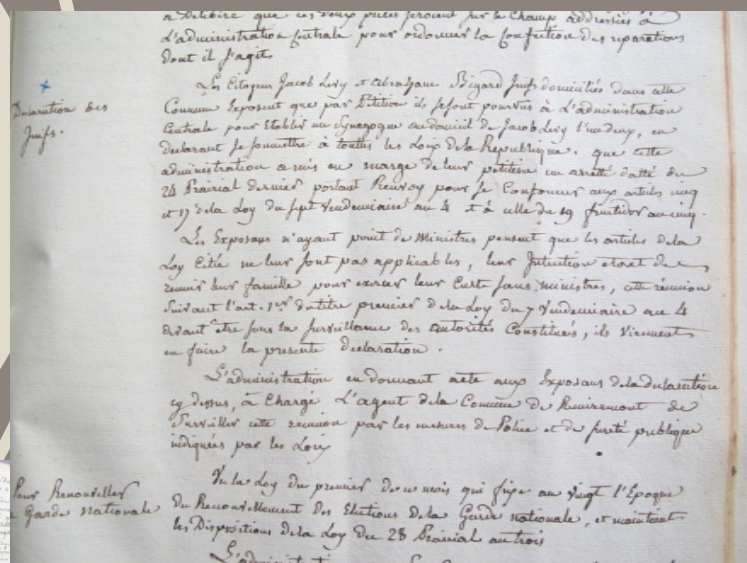 a Délibéré que ces deux pièces seroient sur le Champ addressées à
L'administration Centrale pour ordonner la Confection des réparations
dont il s'agit
Déclaration des
Juifs.
Les Citoyens Jacob Levy et Abraham Bigard Juifs domiciliés dans cette
Commune Exposent que par Pétition ils se sont pourvus à L'administration
Centrale pour Etablir une Synagogue au domicile de Jacob Levy l'un deux, en
declarant se soumettre à touttes les Loix de la République. que cette
administration a mis en marge de leur petition un arrêté datté du
24 Prairial dernier portant Renvoy pour se Conformer aux articles cinq
et 17 de la Loy du sept Vendemiaire an 4 et à celle du 19 fructidor an cinq.
Les Exposans n'ayant point de Ministres pensent que les articles de la
Loy Citée ne leur sont pas applicables, leur Intention etant de
reunir leur famille pour exercer leur Culte sans ministres, cette réunion
suivant l'art. 1er du titre premier de la Loy du 7 Vendemiaire an 4
devant être sous la surveillance des autorités Constituées, ils viennent
en faire la presente declaration.
L'administration en donnant acte aux Exposans de la declaration
cy dessus, a Chargé L'agent de la Commune de Remiremont de
Surveiller cette reunion par les mesures de Police et de sureté publique
indiquées par les Loix
Pour Renouveller
Garde nationale
Vu la Loy du premier de ce mois qui fixe au vingt l'Epoque
du Renouvellement des Elections de la Garde nationale, et maintient
les Dispositions de la Loy du 28 Prairial an trois
L'administration